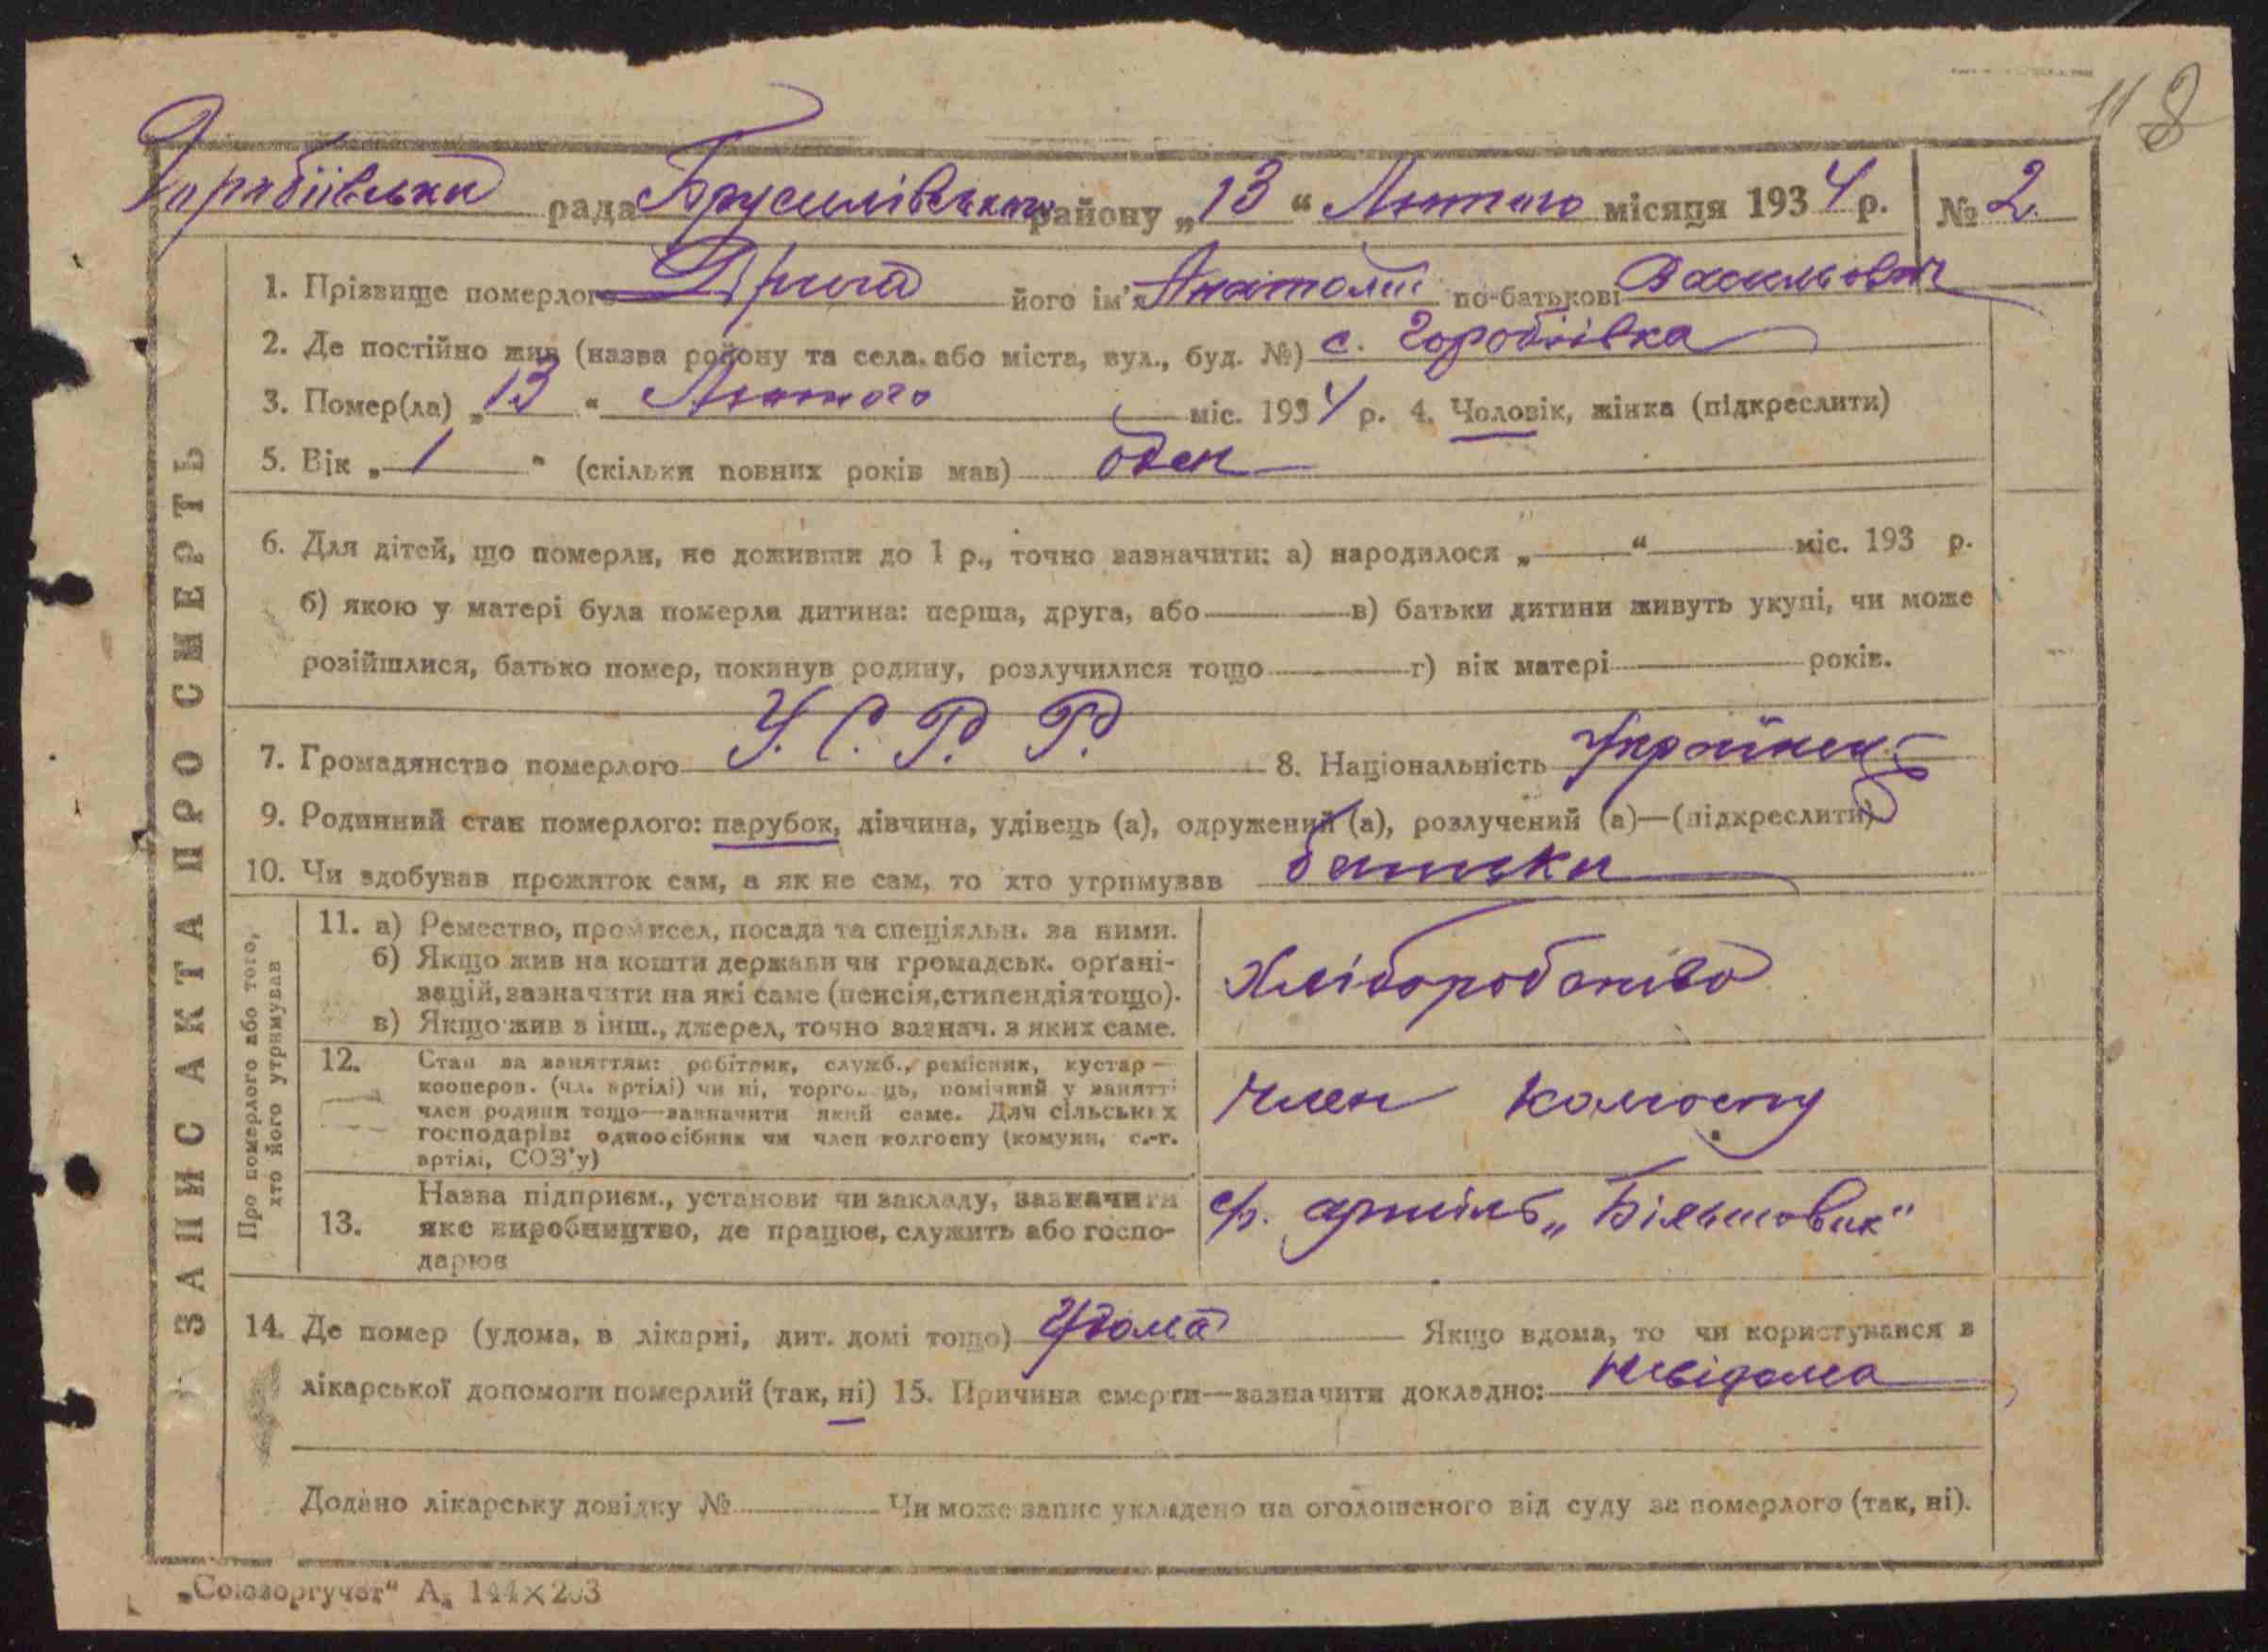 118
рада Брусилівського району „13“ Лютого місяця 1934 р. № 2
1. Прізвище померлого Дрига його ім'я Анатолій по-батькові Васильович
2. Де постійно жив (назва району та села, або міста, вул., буд. №) с. Горобіївка
3. Помер(ла) „13“ Лютого міс. 1934 р. 4. Чоловік, жінка (підкреслити)
5. Вік „1“ (скільки повних років мав) оден
6. Для дітей, що померли, не доживши до 1 р., точно зазначити: а) народилося „ “ міс. 193 р.
б) якою у матері була померла дитина: перша, друга, або в) батьки дитини живуть укупі, чи може
розійшлися, батько помер, покинув родину, розлучилися тощо г) вік матері років.
7. Громадянство померлого У.С.Р.Р. 8. Національність Українець
9. Родинний стан померлого: парубок, дівчина, удівець (а), одружений (а), розлучений (а)—(підкреслити)
10. Чи здобував прожиток сам, а як не сам, то хто утримував батьки
11. а) Ремество, промисел, посада та спеціяльн. за ними.
б) Якщо жив на кошти держави чи громадськ. орґані-
зацій, зазначити на які саме (пенсія, стипендія тощо).
в) Якщо жив з інш., джерел, точно зазнач. з яких саме.
Хліборобство
12. Стан за заняттям: робітник, служб., ремісник, кустар —
кооперов. (чл. артілі) чи ні, торговець, помічний у занятті
член родини тощо—зазначити який саме. Для сільських
господарів: одноосібник чи член колгоспу (комуни, с.-г.
артілі, СОЗ'у)
Член колгоспу
13. Назва підприєм., установи чи закладу, зазначити
яке виробництво, де працює, служить або госпо-
дарює
артіль „Більшовик"
14. Де помер (удома, в лікарні, дит. домі тощо) Удома Якщо вдома, то чи користувався в
лікарської допомоги померлий (так, ні) 15. Причина смерти—зазначити докладно: невідома
Додано лікарську довідку № Чи може запис укладено на оголошеного від суду за померлого (так, ні).
„Союзоргучет“ А
ЗАПИС АКТА ПРО СМЕРТЬ
Про померлого або того,
хто його утримував